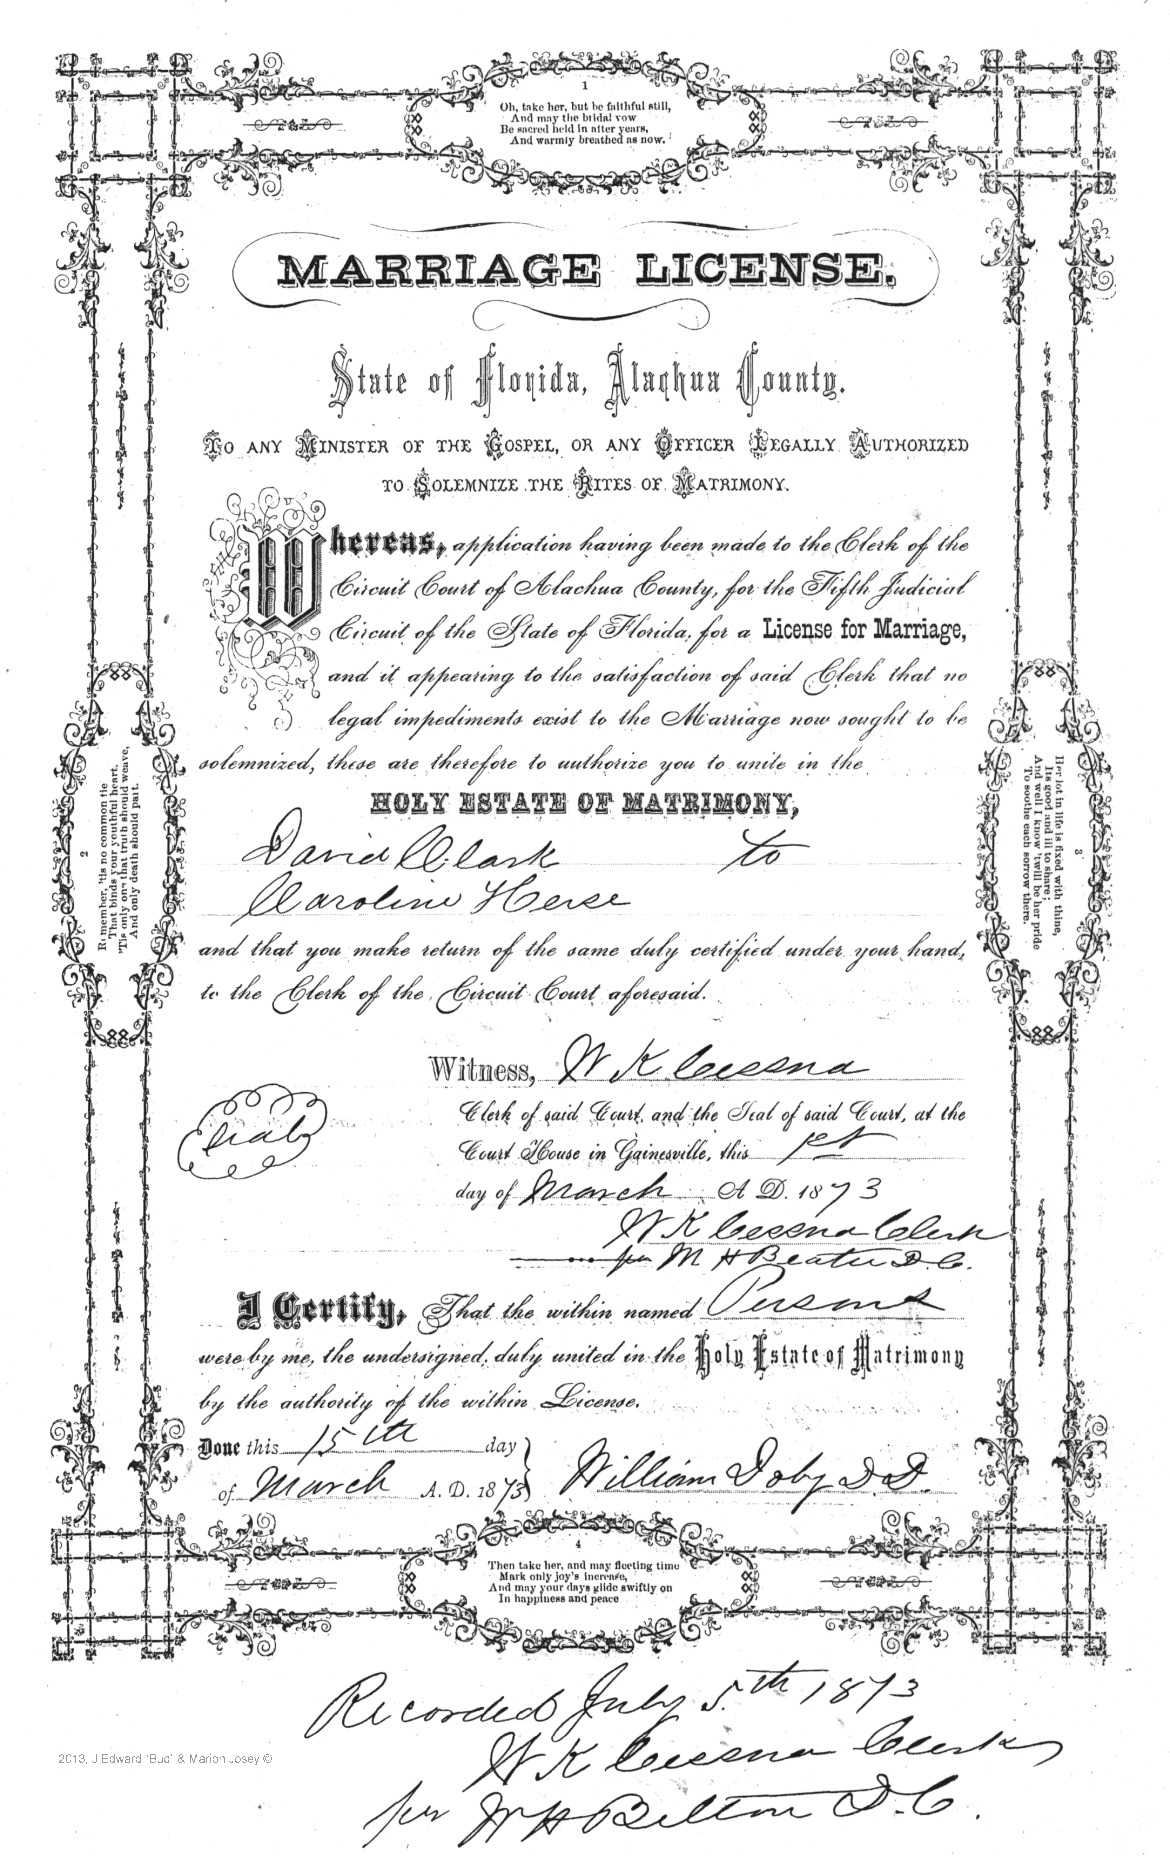 1
Oh, take her, but be faithful still,
And may the bridal vow
Be sacred held in after years,
And warmly breathed as now.
MARRIAGE LICENSE.
State of Florida, Alachua County.
TO ANY MINISTER OF THE GOSPEL, OR ANY OFFICER LEGALLY AUTHORIZED
TO SOLEMNIZE THE RITES OF MATRIMONY.
Whereas, application having been made to the Clerk of the
Circuit Court of Alachua County, for the Fifth Judicial
Circuit of the State of Florida, for a License for Marriage,
and it appearing to the satisfaction of said Clerk that no
legal impediments exist to the Marriage now sought to be
solemnized, these are therefore to authorize you to unite in the
HOLY ESTATE OF MATRIMONY,
David Clark to
Caroline
and that you make return of the same duly certified under your hand,
to the Clerk of the Circuit Court aforesaid.
2
Remember, 'tis no common tie
That binds your youthful heart,
'Tis only one that truth should weave,
And only death should part.
3
Her lot in life is fixed with thine,
Its good and ill to share;
And well I know 'twill be her pride
To soothe each sorrow there.
Witness, W K Cessna
Clerk of said Court, and the Seal of said Court, at the
Court House in Gainesville, this 1st
day of March A. D. 1873
W K Cessna Clerk
per M H D. C.
I Certify, That the within named Persons
were by me, the undersigned, duly united in the Holy Estate of Matrimony
by the authority of the within License.
Done this 15th day
of March A. D. 1873
William Doby D.D.
4
Then take her, and may fleeting time
Mark only joy's increase,
And may your days glide swiftly on
In happiness and peace
Recorded July 5th 1873
W K Cessna Clerk
per W H Belton D. C.
2013, J Edward 'Bud' & Marion Josey ©